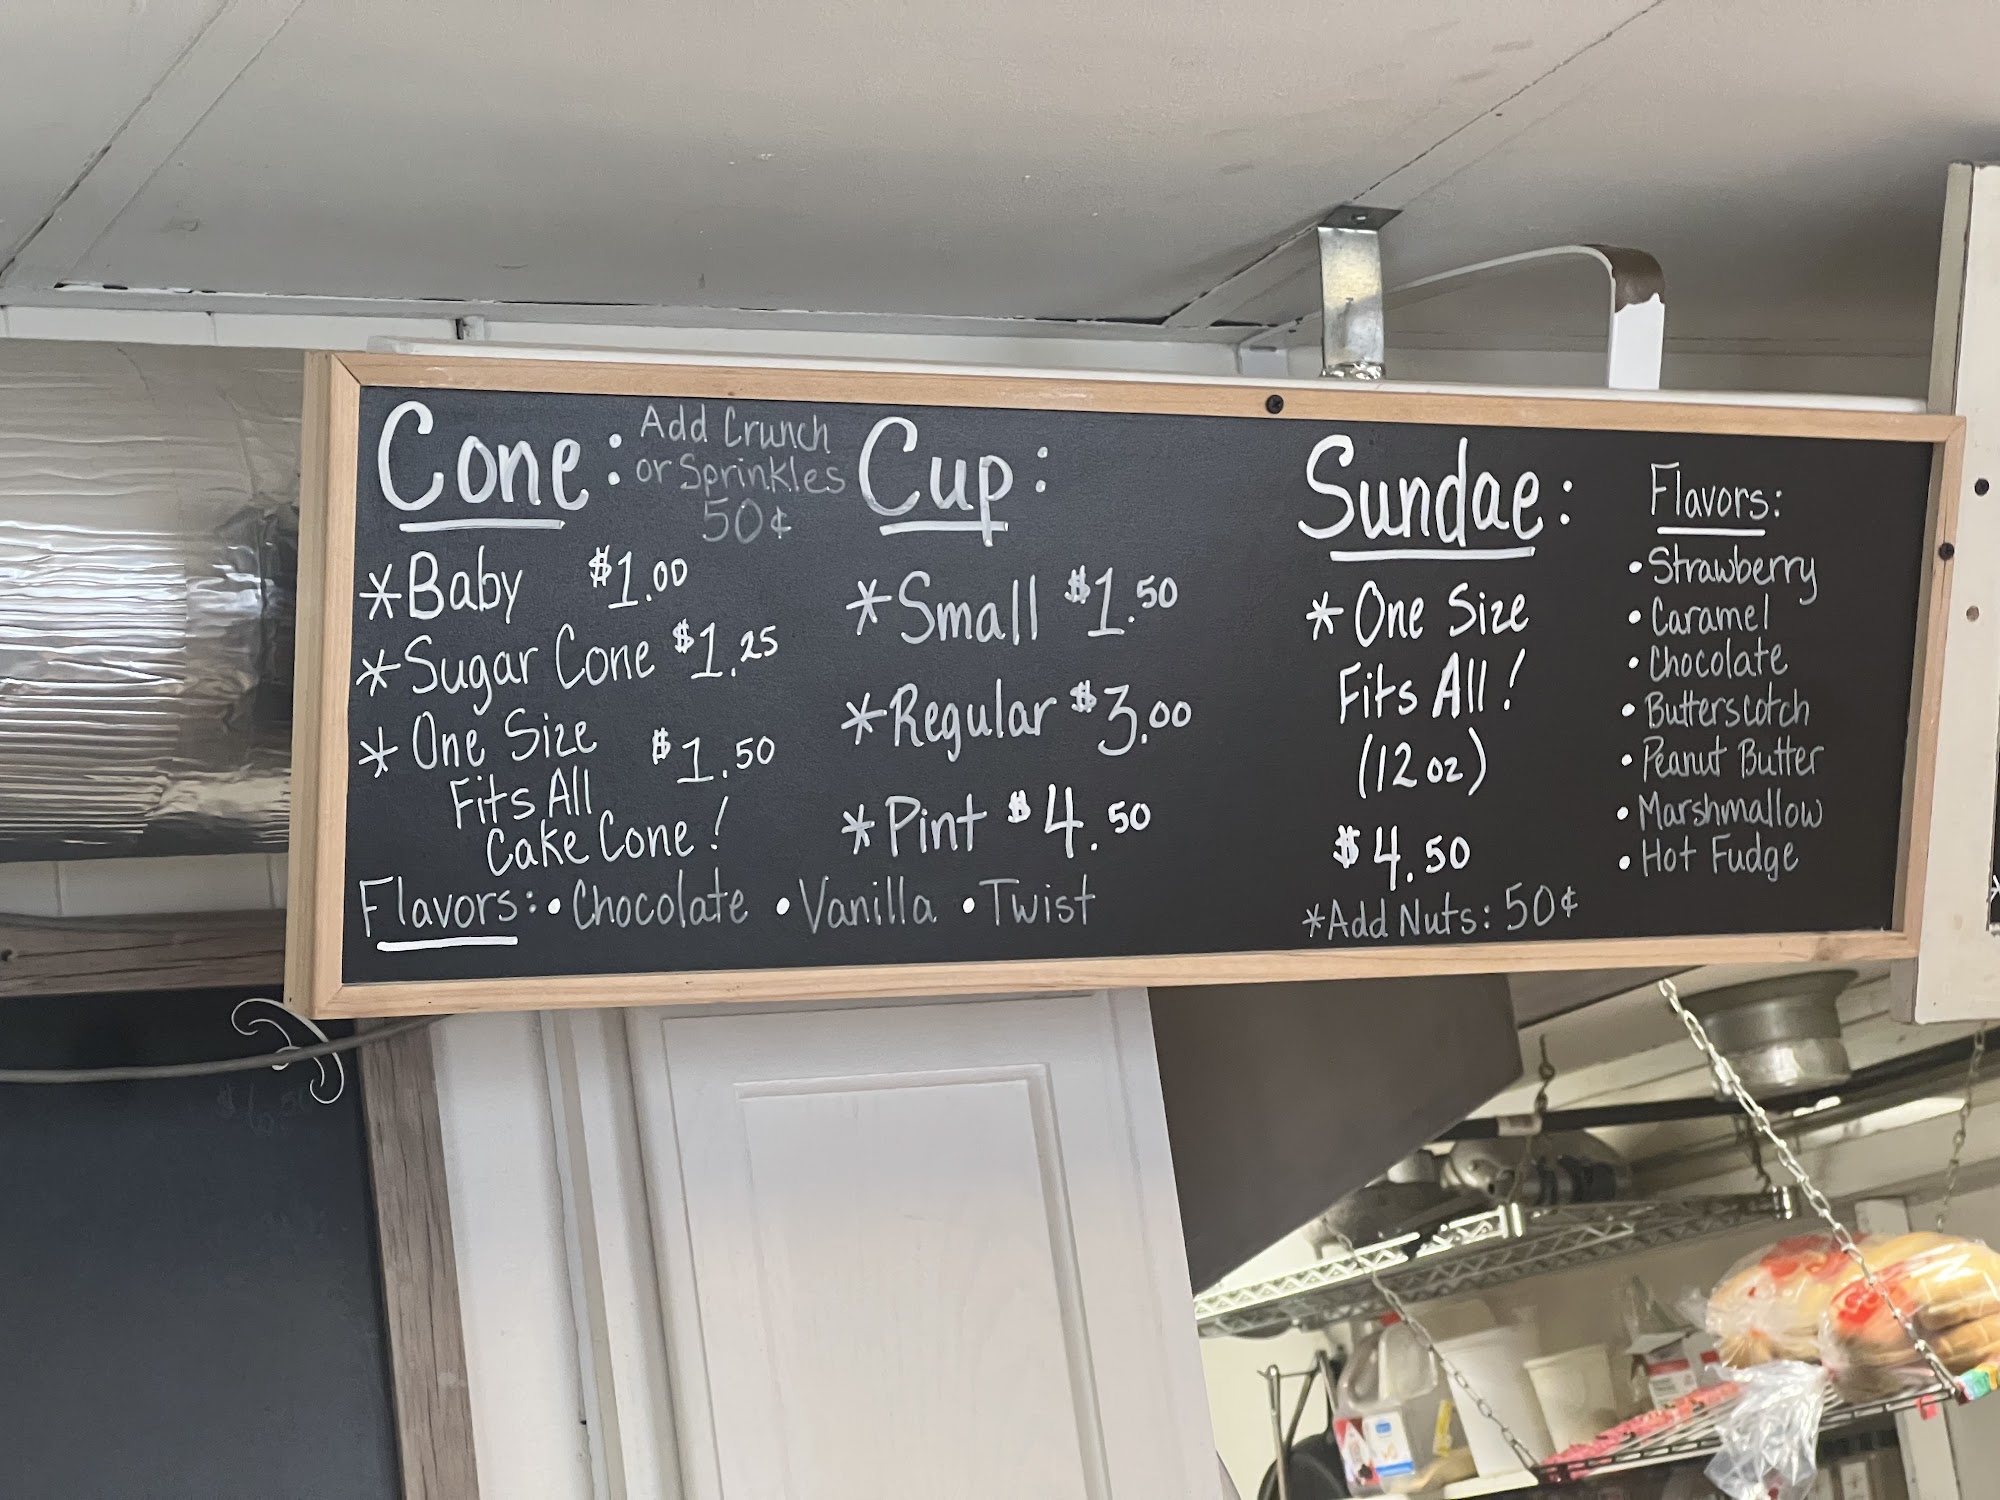 Cone: Add Crunch
or Sprinkles
50¢
*Baby $1.00
*Sugar Cone $1.25
*One Size $1.50
Fits All
Cake Cone!
Cup:
*Small $1.50
*Regular $3.00
*Pint $4.50
Flavors: • Chocolate • Vanilla • Twist
Sundae:
*One Size
Fits All!
(12oz)
$4.50
*Add Nuts: 50¢
Flavors:
• Strawberry
• Caramel
• Chocolate
• Butterscotch
• Peanut Butter
• Marshmallow
• Hot Fudge